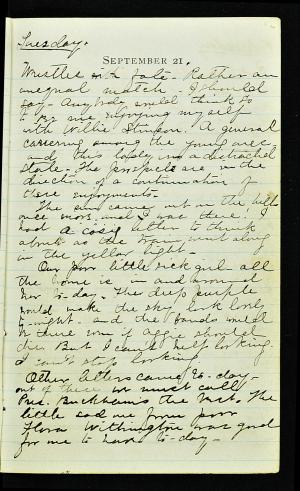 Tuesday.
SEPTEMBER 21.
Wrestle with fate. Rather an
unequal match. I should
say. Anybody would think to
see me enjoying myself
with Willie Stimson. A general
careering among the young ones
and this topsy in a distracted
state. The prospects are in the
direction of a continuation of
these enjoyments.
The sun came out on the hills
once more, and I was there! I
had a cosy letter to think
about as the train went along
in the yellow light.
Our poor little sick girl - all
the home is in and around
her to-day. The deep
would make the sky look lonely
to-night. and the bonds would
if Aggie should
die. But I can't help looking.
I can't stop looking.
Other letters came to-day -
out of these we must call
Pres. Buckham's the best. The
little sad one from poor
Flora Withington was good
for me to have to-day -